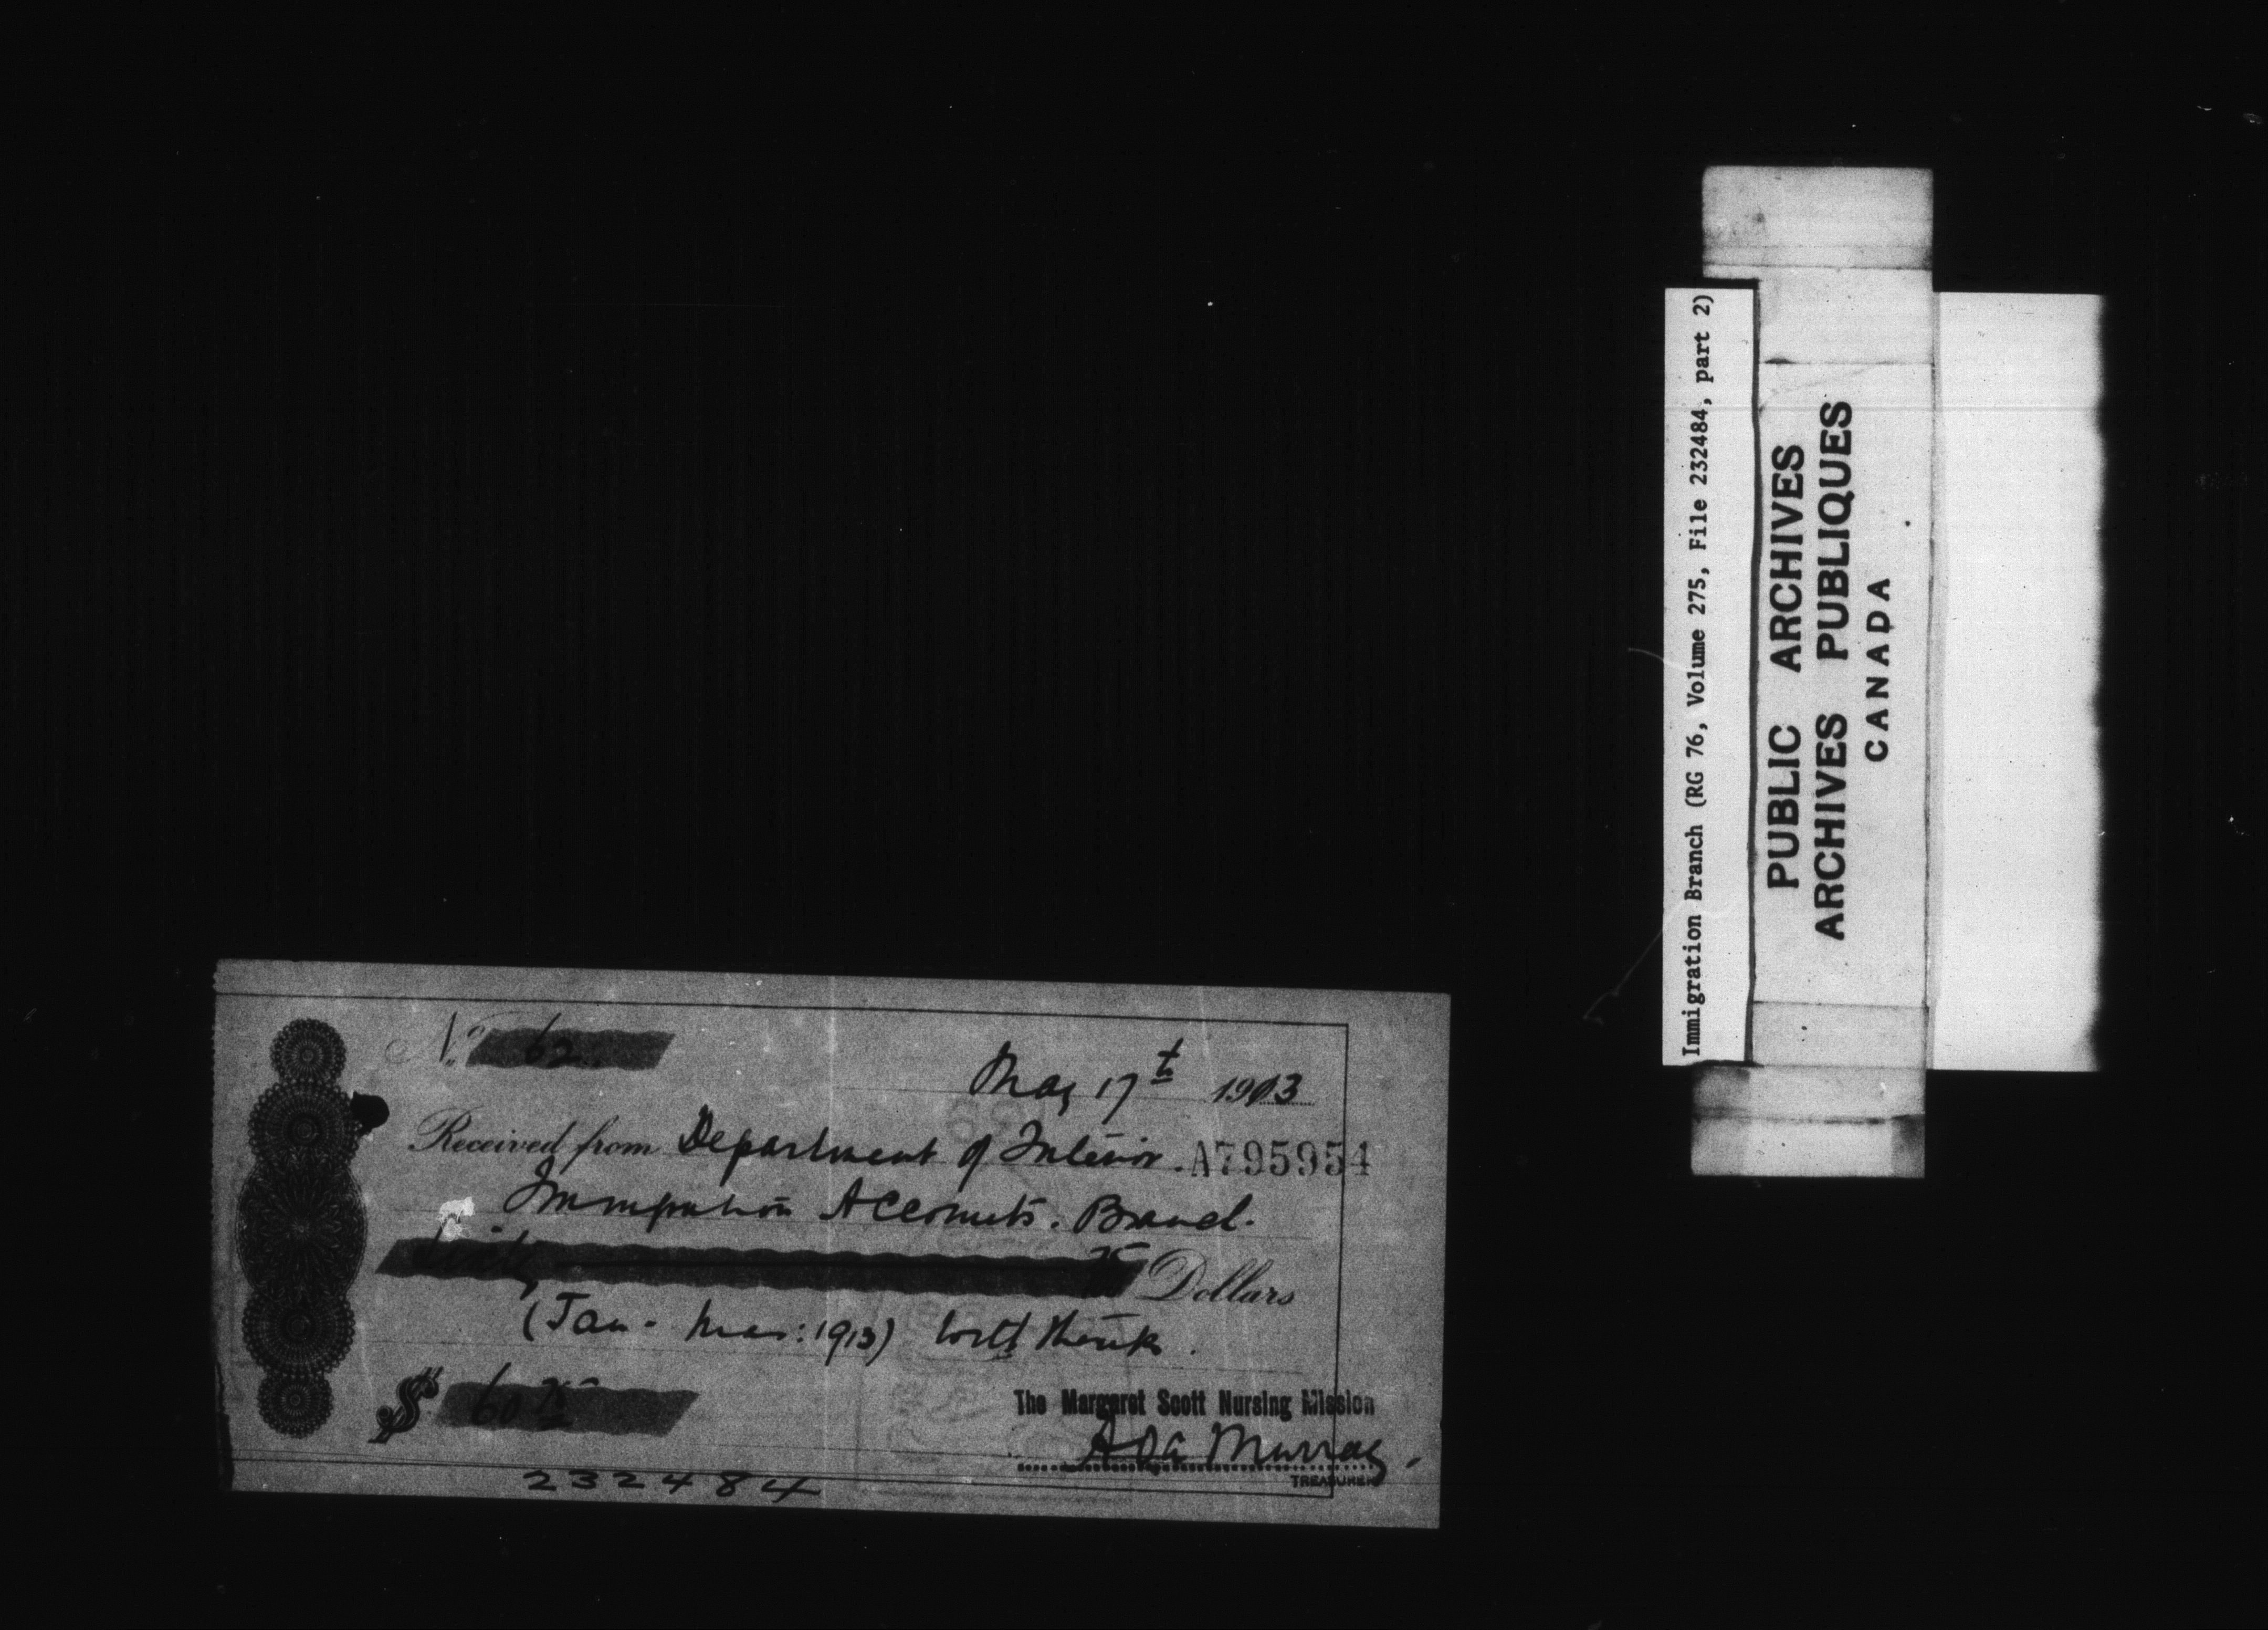 No. 62.
May 17th 1913
Received from Department of Interior. A795954
Immigration Accounts. Branch.
Sixty 75 Dollars
(Jan - Mar: 1913) with thanks.
$ 60 75
The Margaret Scott Nursing Mission
Ada Murray.
TREASURER
232484
Immigration Branch (RG 76, Volume 275, File 232484, part 2)
PUBLIC ARCHIVES
ARCHIVES PUBLIQUES
CANADA